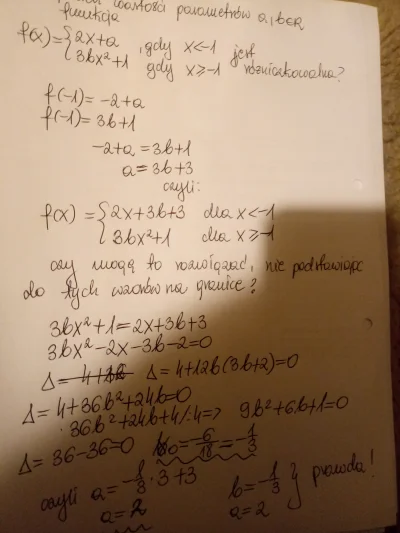 wartości parametrów a, b∈R
funkcja
f(x)={2x+a , gdy x<-1 jest
{3bx²+1 gdy x≥-1 różniczkowalna?
f(-1)=-2+a
f(-1)=3b+1
-2+a=3b+1
a=3b+3
czyli:
f(x)={2x+3b+3 dla x<-1
{3bx²+1 dla x≥-1
czy mogę to rozwiązać, nie podstawiając
do tych wzorów na granice?
3bx²+1=2x+3b+3
3bx²-2x-3b-2=0
Δ=4+12b(3b+2)=0
Δ=4+36b²+24b=0
36b²+24b+4/:4=> 9b²+6b+1=0
Δ=36-36=0 b=-6/18=-1/3
czyli a=-1/3·3+3 b=-1/3 } prawda!
a=2 a=2